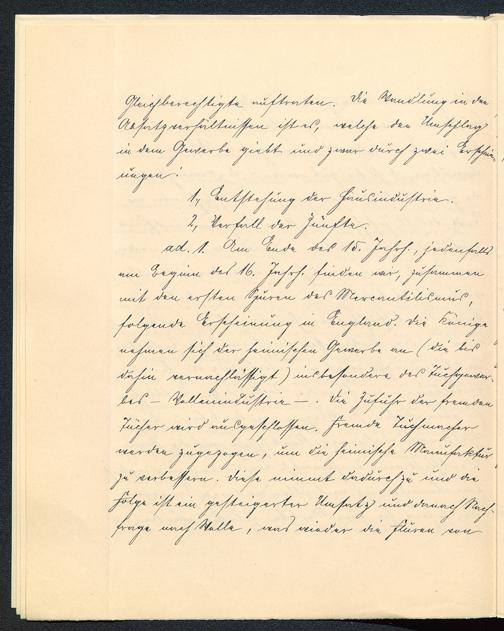 Gleichberechtigte auftraten. Die Wandlung in den
Absatzverhältnissen ist es, welche den Umschlag
in dem Gewerbe giebt und zwar durch zwei Erschein-
ungen:
1, Entstehung der Hausindustrie.
2, Verfall der Zünfte.
ad. 1. Am Ende des 15. Jahrh., jedenfalls
am Beginn des 16. Jahrh. finden wir, zusammen
mit den ersten Spuren des Mercantilismus,
folgende Erscheinung in England. Die Könige
nehmen sich der heimischen Gewerbe an (die bis
dahin vernachlässigt) insbesondere des Tuchgewer-
bes – Wollenindustrie –. Die Zufuhr der fremden
Tücher wird ausgeschlossen. Fremde Tuchmacher
werden zugezogen, um die heimische Manufaktur
zu verbessern. Diese nimmt dadurch zu und die
Folge ist ein gesteigerter Umsatz und danach Nach-
frage nach Wolle, was wieder die Fluren von